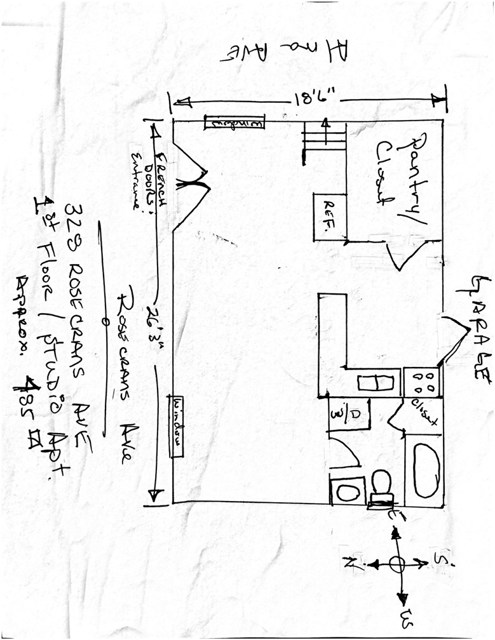 Ave
18'6"
Window
FRENCH
DOORS:
Entrance
26'3"
Window
REF.
Pantry/
Closet
GARAGE
Closet
W/D
E
S
N
W
ROSECRANS Ave
328 ROSECRANS AVE
1st Floor / STUDIO Apt.
Approx. 485